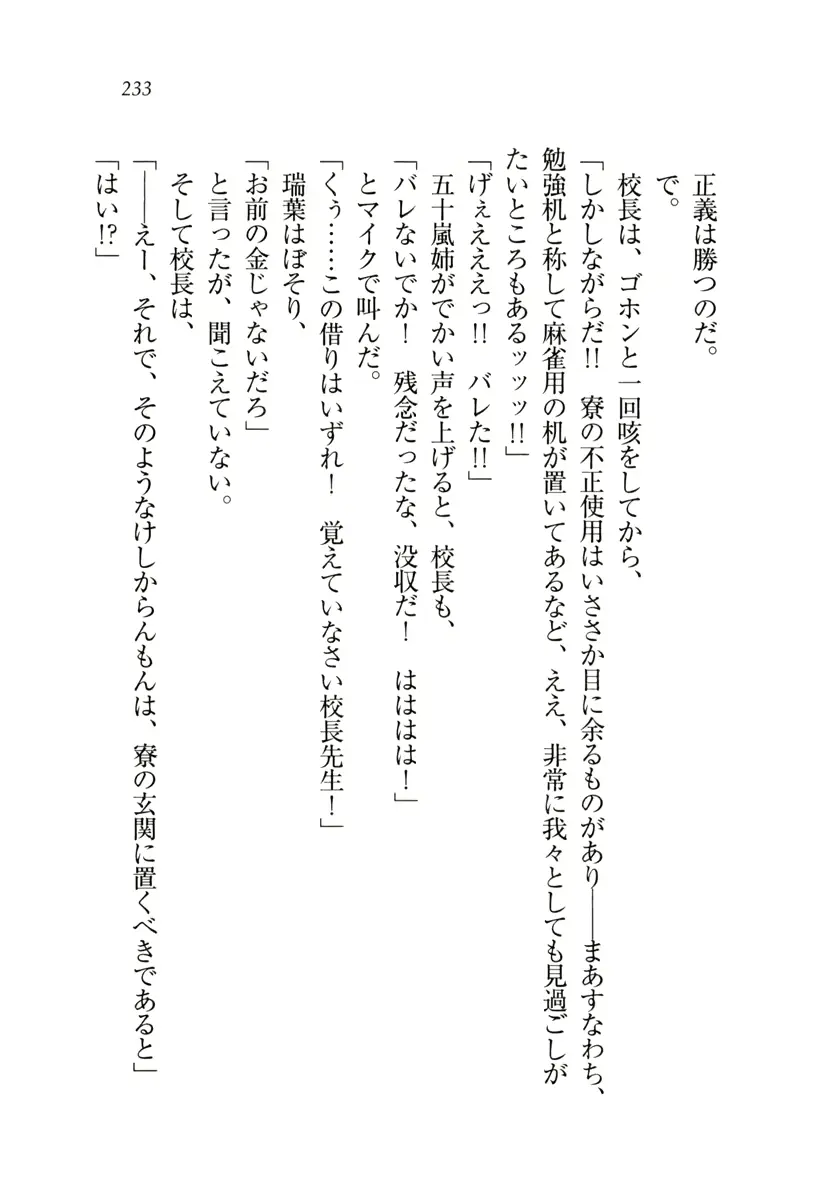 233
正義は勝つのだ。
で。
校長は、ゴホンと一回咳をしてから、
「しかしながらだ!!　寮の不正使用はいささか目に余るものがあり――まあすなわち、
勉強机と称して麻雀用の机が置いてあるなど、ええ、非常に我々としても見過ごしが
たいところもあるッッッ!!」
「げぇえええっ!!　バレた!!」
五十嵐姉がでかい声を上げると、校長も、
「バレないでか！　残念だったな、没収だ！　はははは！」
とマイクで叫んだ。
「くぅ……この借りはいずれ！　覚えていなさい校長先生！」
瑞葉はぼそり、
「お前の金じゃないだろ」
と言ったが、聞こえていない。
そして校長は、
「――えー、それで、そのようなけしからんもんは、寮の玄関に置くべきであると」
「はい!?」